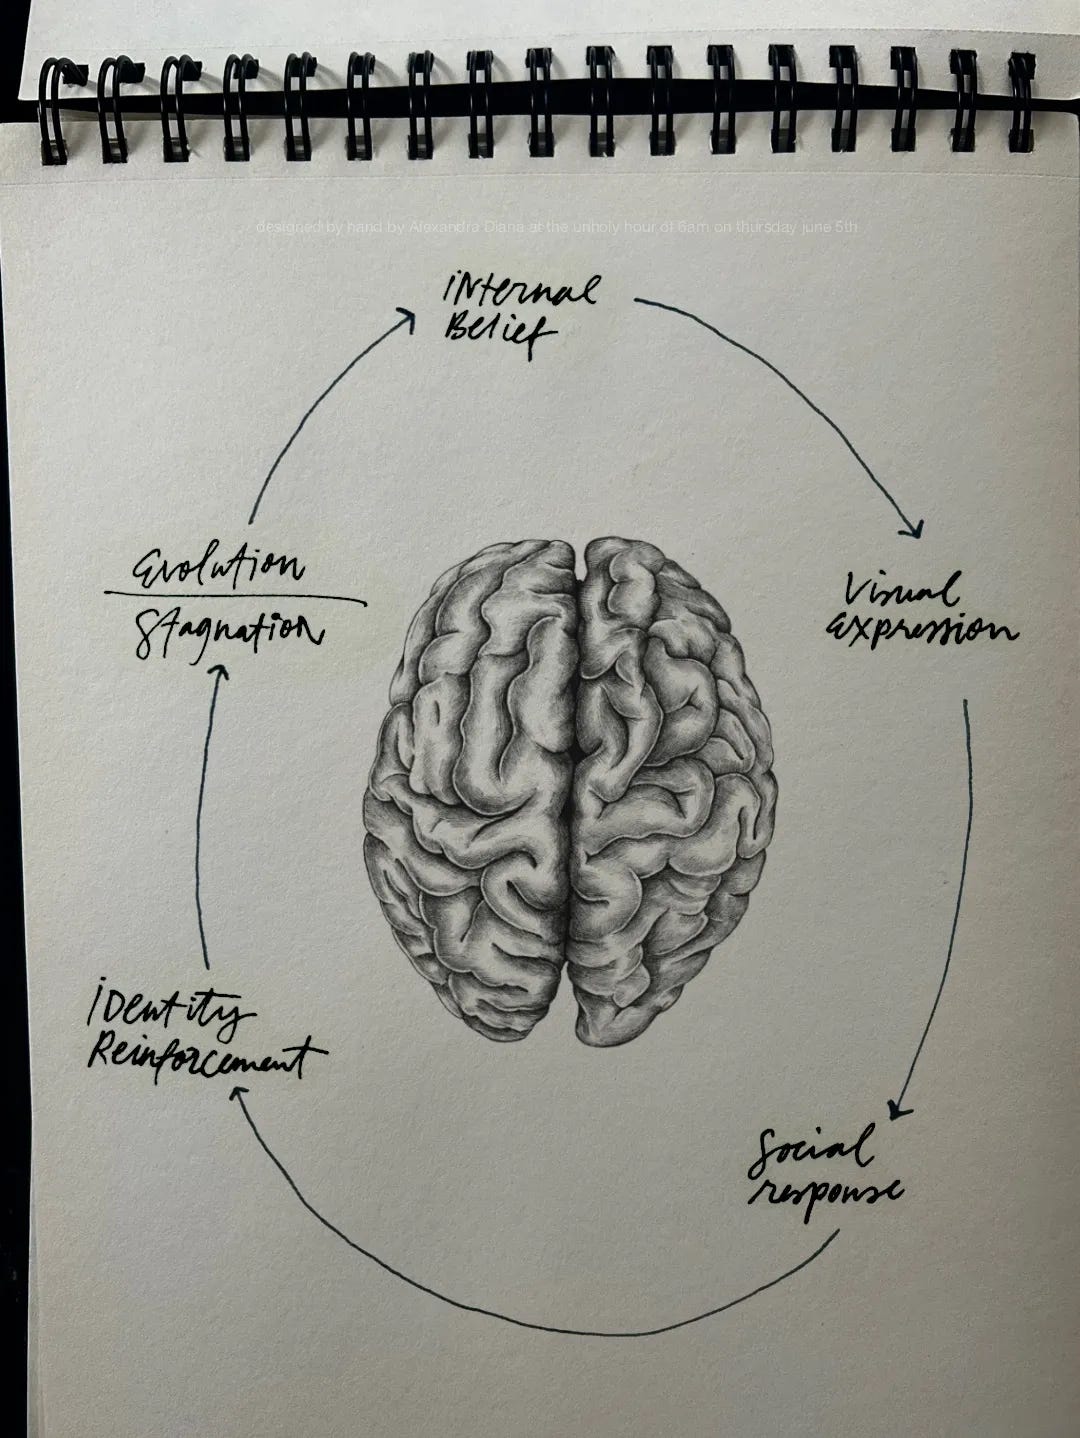 designed by hand by Alexandra Diana at the unholy hour of 6am on thursday june 5th
internal
Belief
Visual
Expression
Social
response
identity
Reinforcement
Evolution
Stagnation